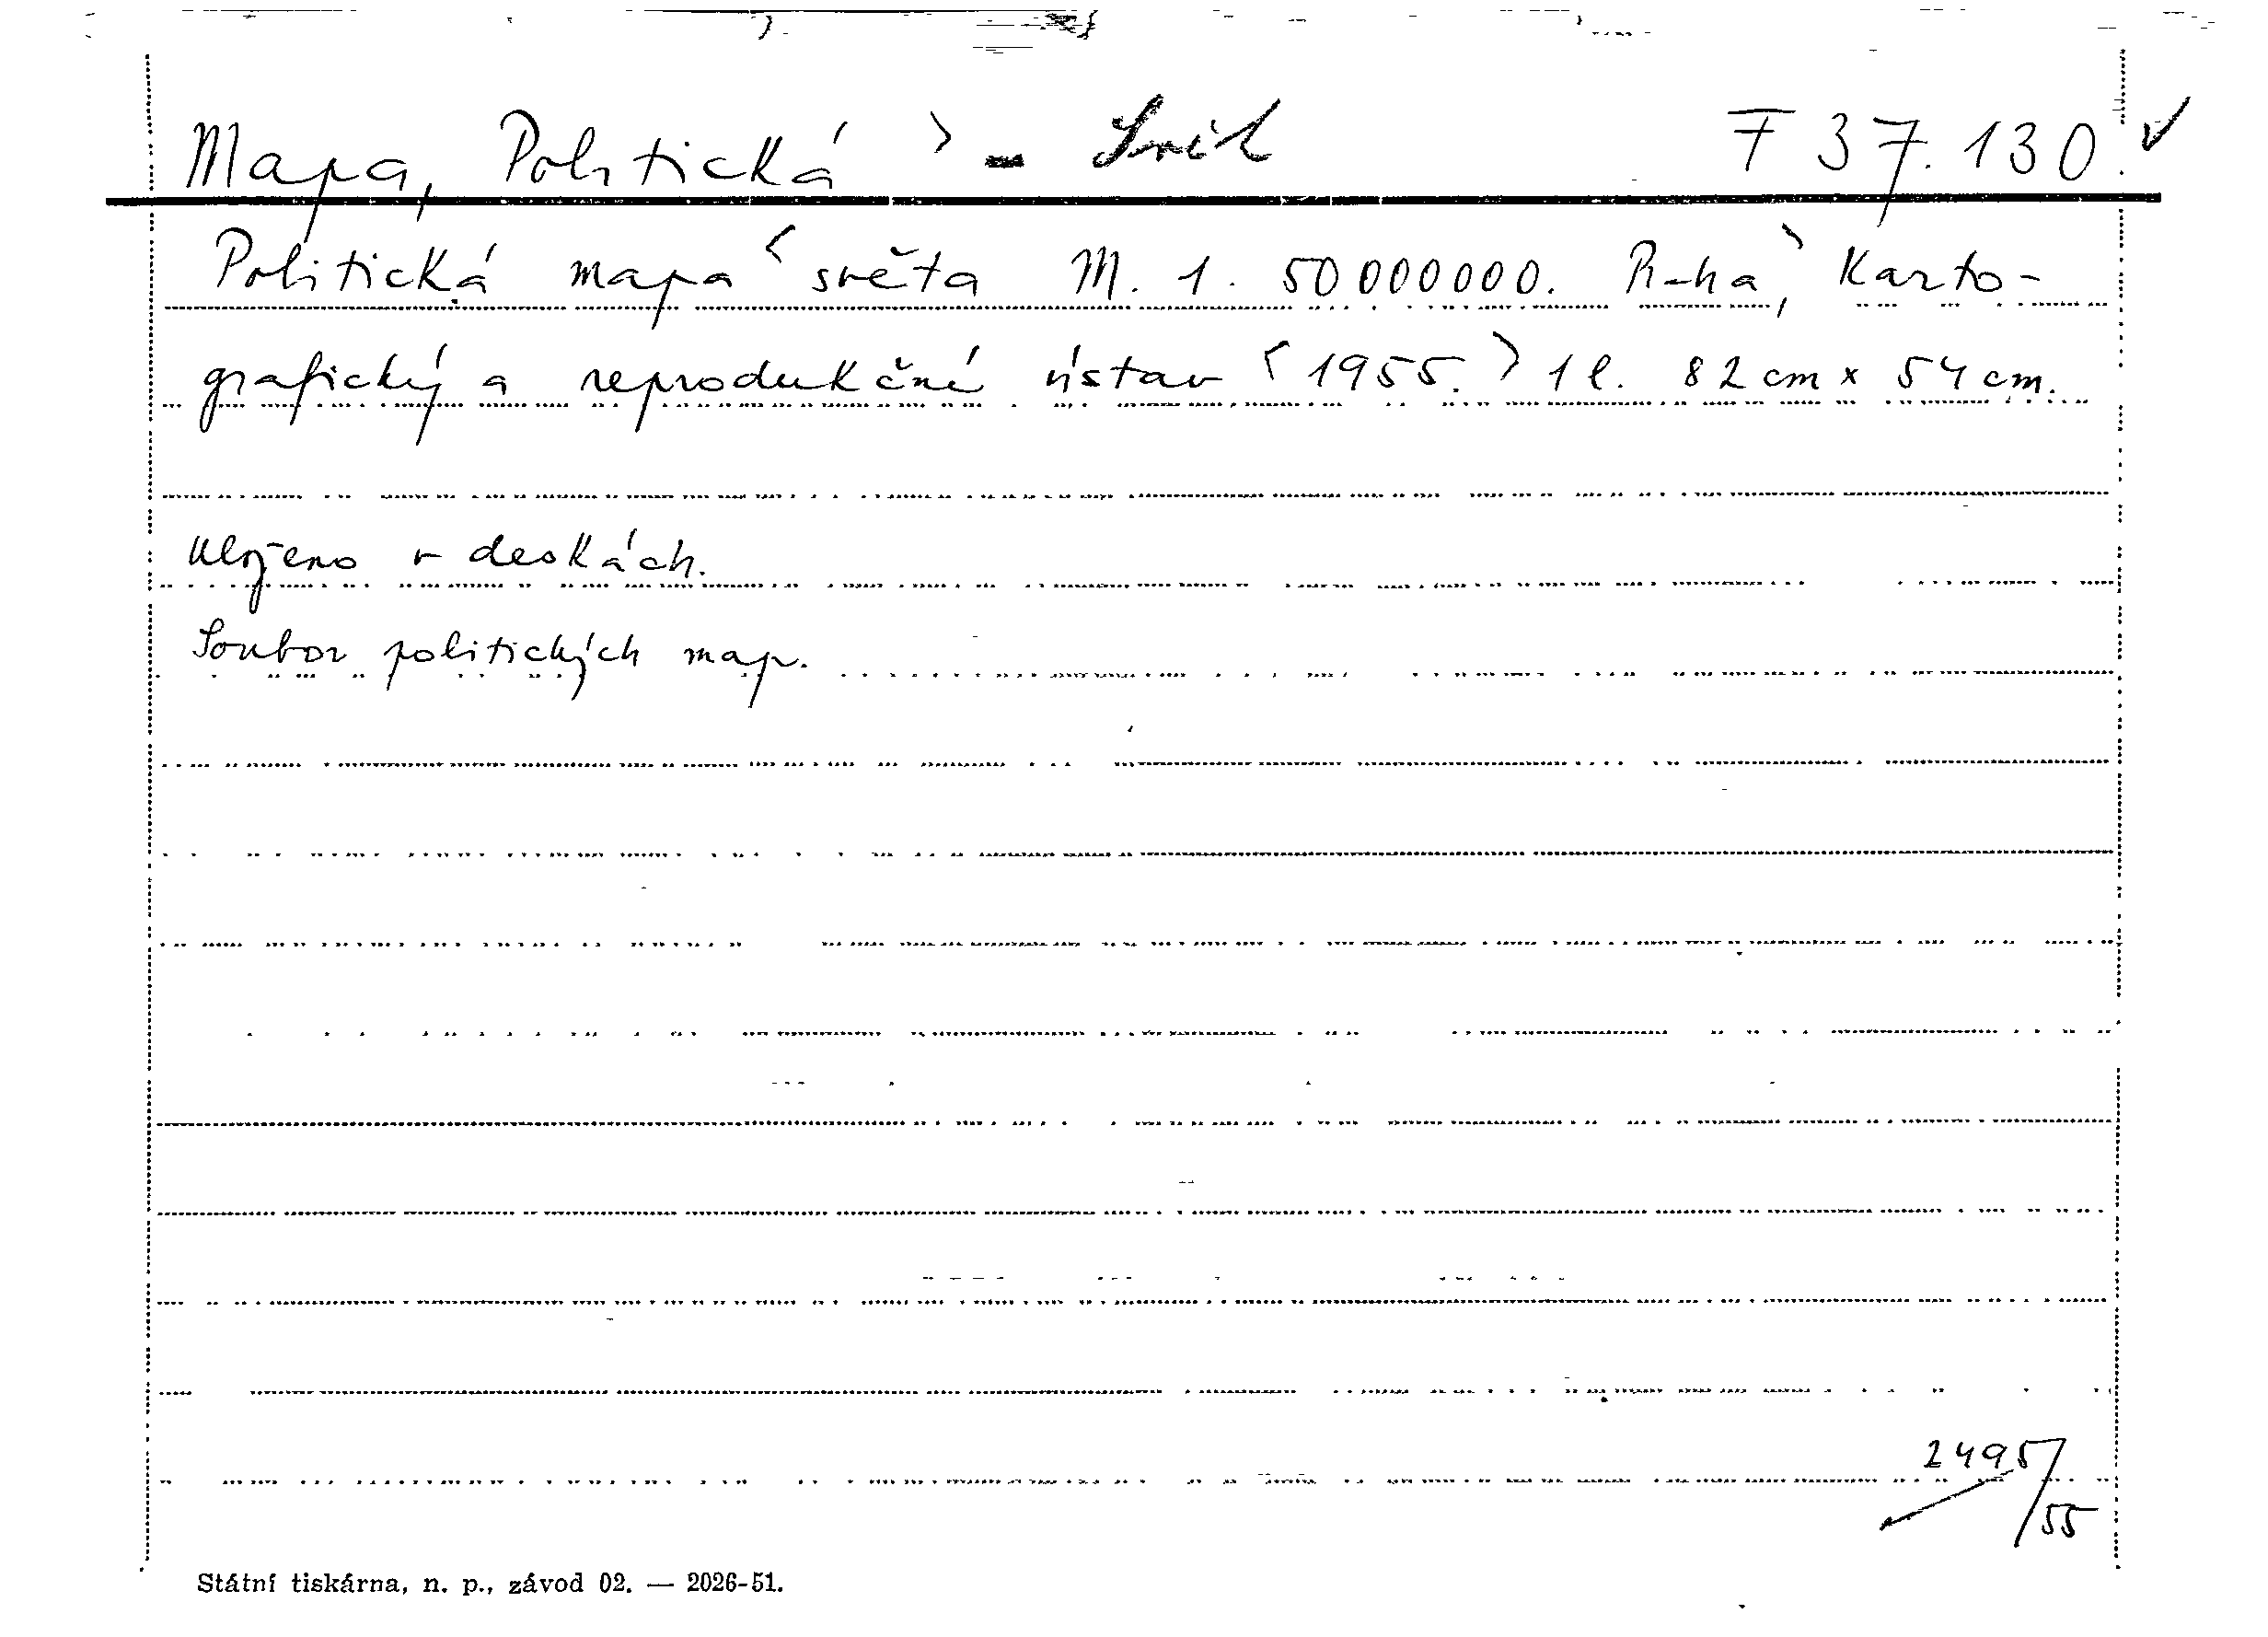 Mapa, Politická > - Svět F 37.130. ✓
Politická mapa < světa M. 1. 50000000. Praha, > Karto-
grafický a reprodukční ústav < 1955. > 1 l. 82 cm x 54 cm.
Uloženo v deskách.
Soubor politických map.
2495/55
Státní tiskárna, n. p., závod 02. — 2026-51.